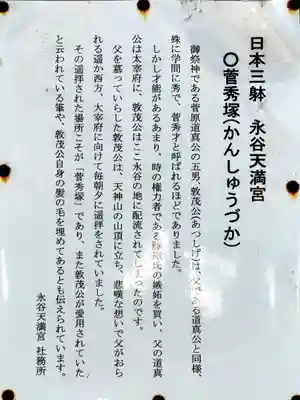 日本三躰　永谷天満宮
〇菅秀塚(かんしゅうづか)
御祭神である菅原道真公の五男・敦茂公(あつしげ)は、父である道真公と同様、
殊に学問に秀で、菅秀才と呼ばれるほどでありました。
しかし才能があるあまり、時の権力者である藤原氏の嫉妬を買い、父の道真
公は太宰府に、敦茂公はここ永谷の地に配流されてしまったのです。
父を慕っていらした敦茂公は、天神山の山頂に立ち、悲嘆な想いで父がおら
れる遥か西方、大宰府に向けて毎朝夕に遥拝をされていました。
その遥拝された場所こそが「菅秀塚」であり、また敦茂公が愛用されていた
と云われている筆や、敦茂公自身の髪の毛を埋めてあるとも伝えられています。
永谷天満宮　社務所